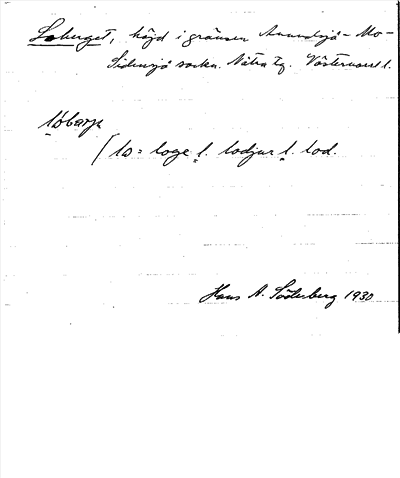 Loberget, höjd i gränsen Anundsjö - Mo -
Sidensjö socken. Nätra tg. Västernorrl l.
lóbarje
/ lo = loge l. lodjur l. lod.
Hans A. Söderberg 1930